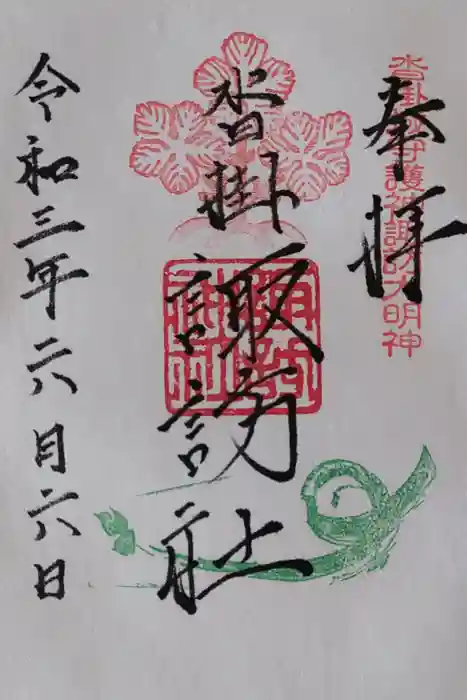 奉拝
沓掛守護神諏訪大明神
沓掛
諏訪社
令和三年六月六日